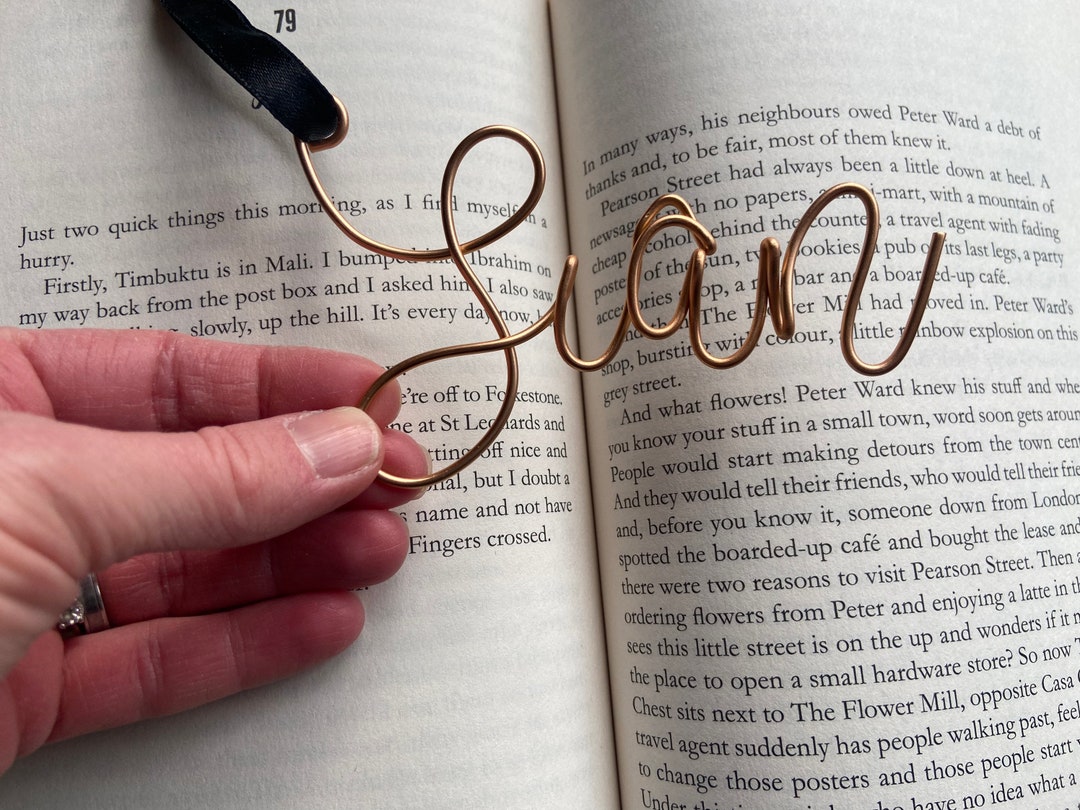 79
Just two quick things this morning, as I find myself in a
hurry.
Firstly, Timbuktu is in Mali. I bumped Ibrahim on
my way back from the post box and I asked him. I also saw
slowly, up the hill. It's every day now,
we're off to Folkestone,
at St Leonards and
off nice and
but I doubt a
name and not have
Fingers crossed.
Sian
In many ways, his neighbours owed Peter Ward a debt of
thanks and, to be fair, most of them knew it.
Pearson Street had always been a little down at heel. A
with no papers, a mini-mart, with a mountain of
cheap alcohol behind the counter, a travel agent with fading
of the sun, two bookies, a pub on its last legs, a party
shop, a bar and a boarded-up café.
The Flower Mill had moved in. Peter Ward's
shop, bursting with colour, a little rainbow explosion on this
grey street.
And what flowers! Peter Ward knew his stuff and
you know your stuff in a small town, word soon gets
People would start making detours from the town
And they would tell their friends, who would tell their
and, before you know it, someone down from London
spotted the boarded-up café and bought the lease and
there were two reasons to visit Pearson Street. Then
ordering flowers from Peter and enjoying a latte in
sees this little street is on the up and wonders if it
the place to open a small hardware store? So now
Chest sits next to The Flower Mill, opposite Casa
travel agent suddenly has people walking past,
to change those posters and those people start
Under have no idea what a